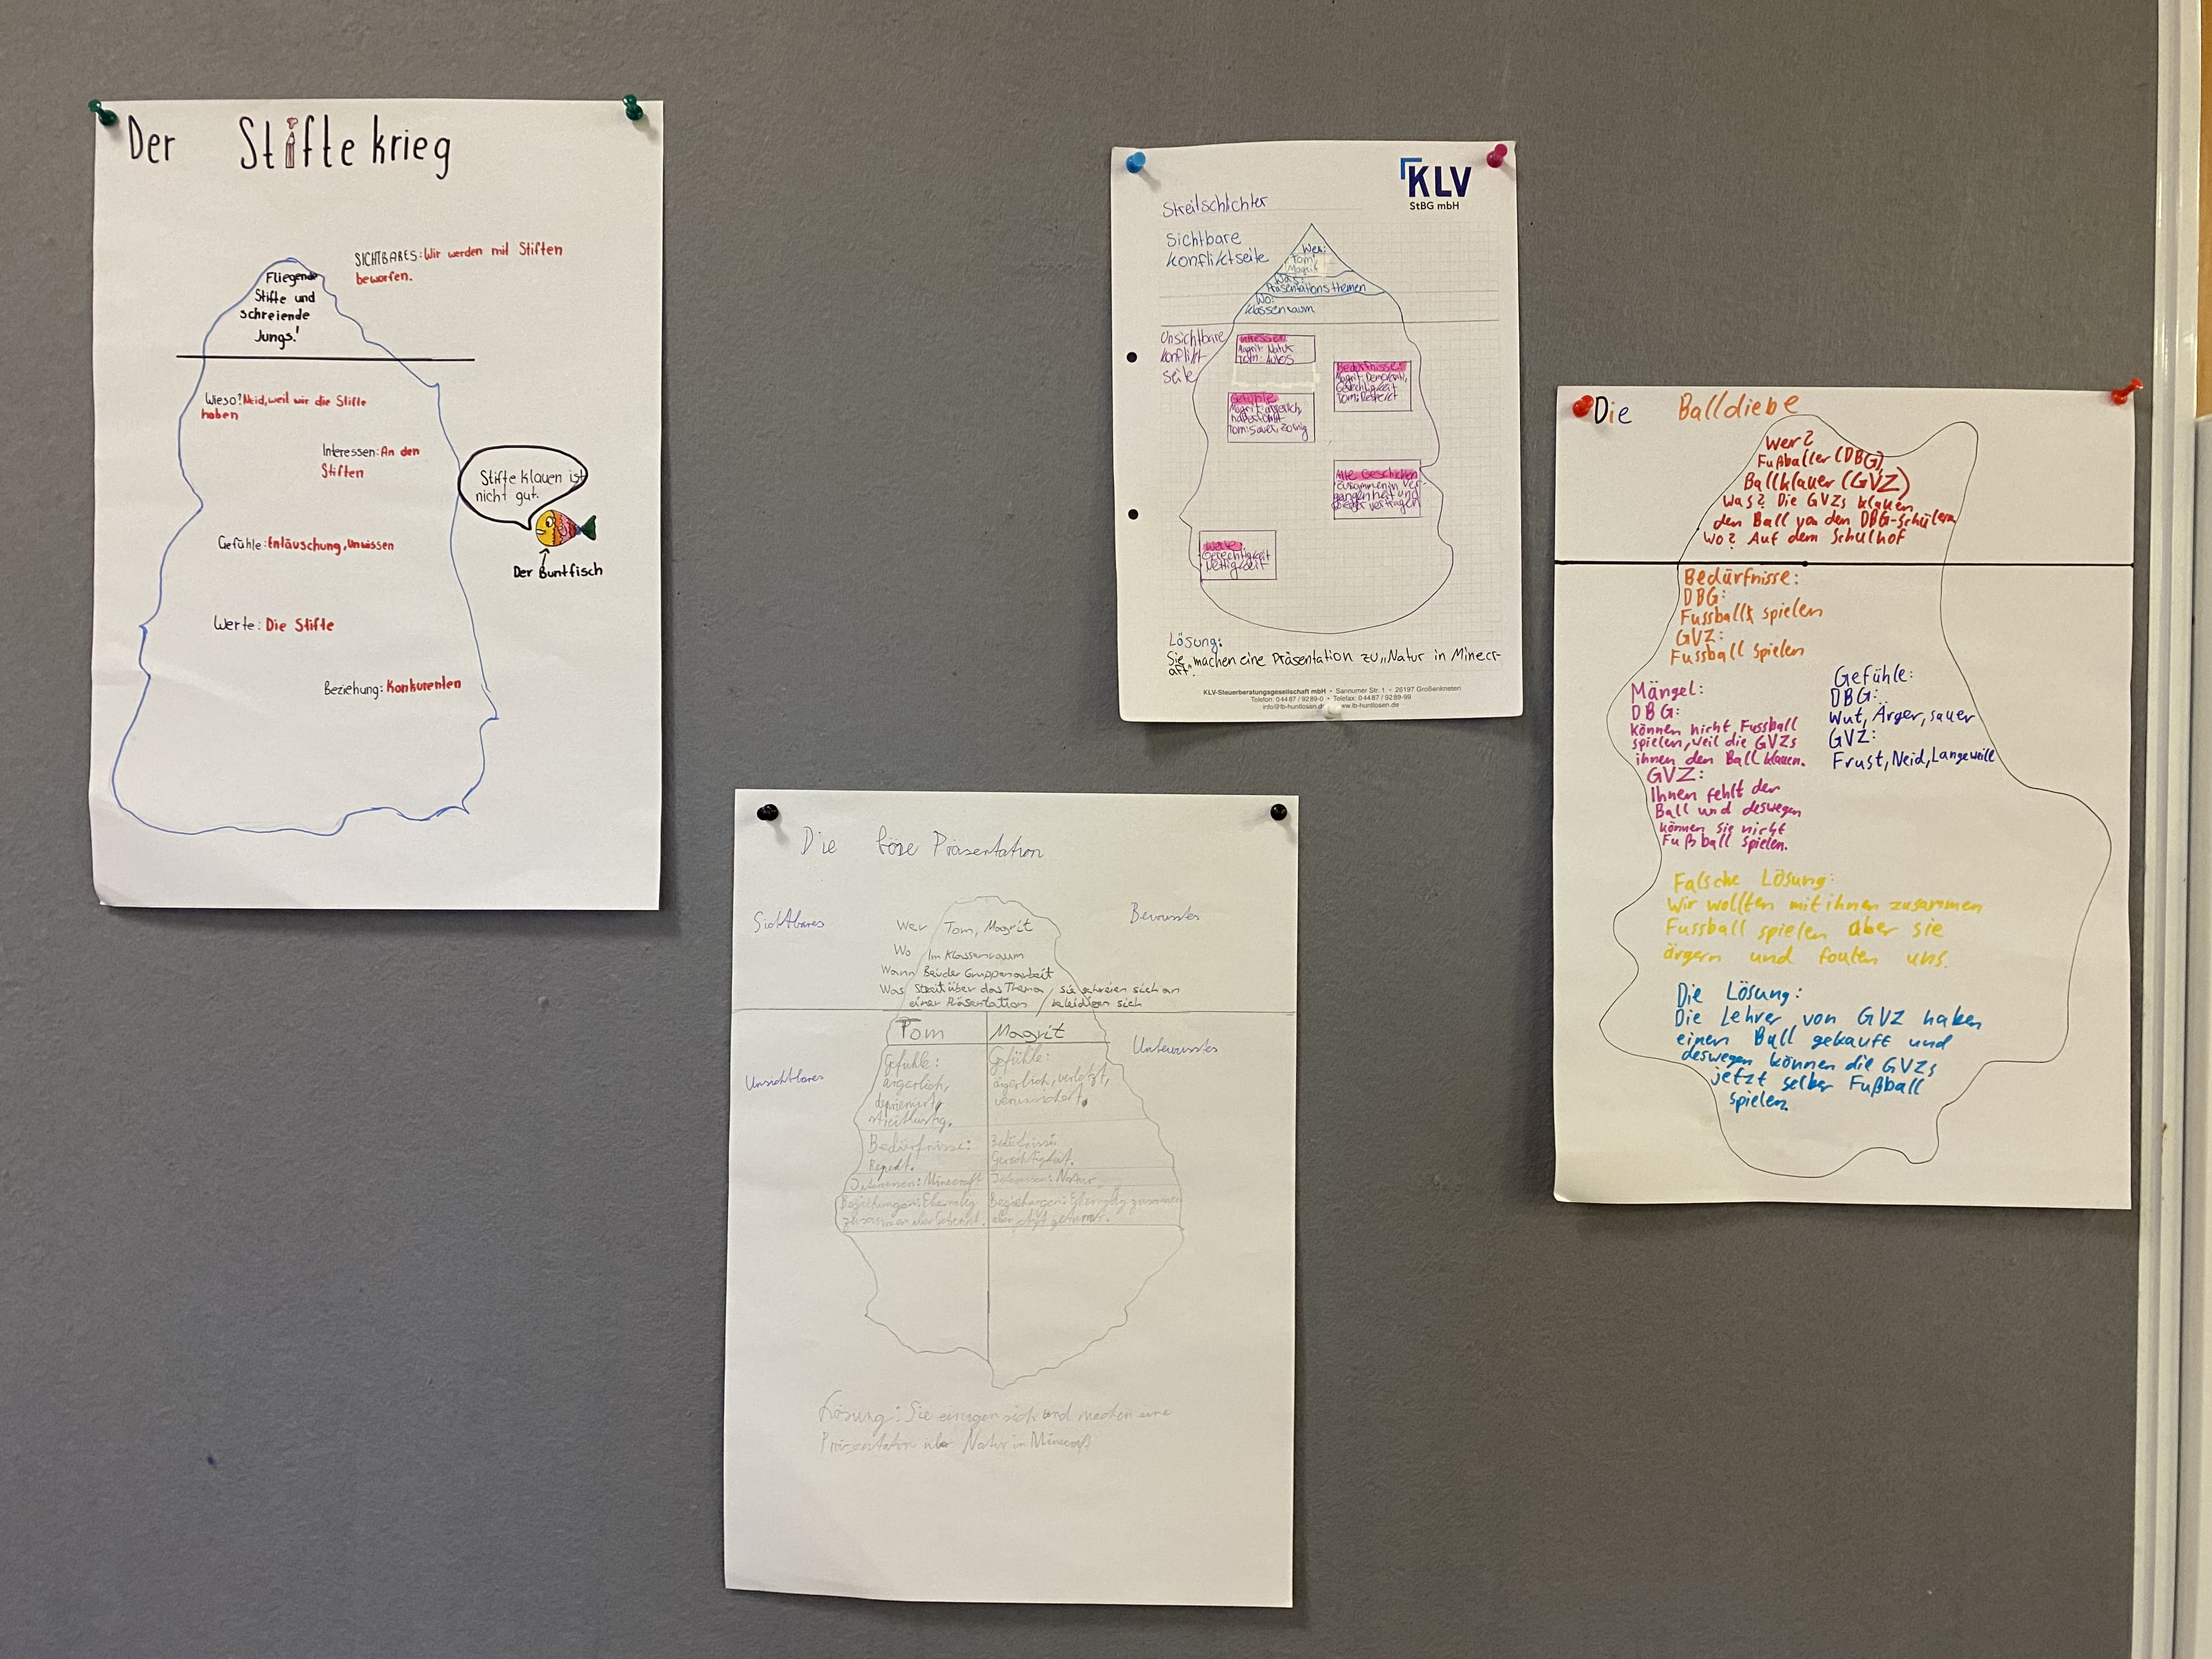 Der Stiftekrieg
SICHTBARES: Wir werden mit Stiften
beworfen.
Fliegende
Stifte und
schreiende
Jungs!
Wieso? Neid, weil wir die Stifte
haben
Interessen: An den
Stiften
Stifte klauen ist
nicht gut.
Der Buntfisch
Gefühle: Entäuschung, Unwissen
Werte: Die Stifte
Beziehung: Konkurenten
KLV
StBG mbH
Streitschlichter
Sichtbare
Konfliktseite
Wer:
Tom,
Magrit
Was:
Präsentationsthemen
Wo:
Klassenraum
Unsichtbare
Konflikt
seite
Interessen
Magrit: Natur
Tom: Autos
Bedürfnisse:
Magrit: Demokrati,
Gerechtigkeit
Tom: Respekt
Gefühle
Magrit: ärgerlich,
Tom: sauer, zornig
Alte Geschichten
zusammen in ver
gangenheit und
vertragen
Werte
Gerechtigkeit
Nettigkeit
Lösung:
Sie machen eine Präsentation zu „Natur in Minecr-
aft".
KLV-Steuerberatungsgesellschaft mbH • Sannumer Str. 1 • 26197 Großenkneten
Telefon: 04487 / 9289-0 • Telefax: 04487 / 9289-99
info@lb-huntlosen.de www.lb-huntlosen.de
Die böse Präsentation
Sichtbares
Bewusstes
Wer Tom, Magrit
Wo Im Klassenraum
Wann Bei der Gruppenarbeit
Was Streit über das Thema / sie schreien sich an
einer Präsentation / beleidigen sich
Unsichtbares
Unbewusstes
Tom Magrit
Gefühle: Gefühle:
ärgerlich, ärgerlich, verletzt,
deprimiert, verunsichert.
streitlustig.
Bedürfnisse: Bedürfnisse:
Repekt. Gerechtigkeit.
Interessen: Minecraft Interessen: Natur
Beziehungen: Ehemalig Beziehungen: Ehemalig zusammen
zusammen aber getrennt. aber jetzt getrennt.
Lösung: Sie einigen sich und machen eine
Präsentation über Natur in Minecraft
Die Balldiebe
Wer?
Fußballer (DBG),
Ballklauer (GVZ)
Was? Die GVZs klauen
den Ball von den DBG-Schülern
Wo? Auf dem Schulhof
Bedürfnisse:
DBG:
Fussball spielen
GVZ:
Fussball spielen
Mängel:
DBG:
können nicht Fussball
spielen, weil die GVZs
ihnen den Ball klauen.
GVZ:
Ihnen fehlt der
Ball und deswegen
können sie nicht
Fußball spielen.
Gefühle:
DBG:
Wut, Ärger, sauer
GVZ:
Frust, Neid, Langeweile
Falsche Lösung:
Wir wollten mit ihnen zusammen
Fussball spielen aber sie
ärgern und foulen uns.
Die Lösung:
Die Lehrer von GVZ haben
einen Ball gekauft und
deswegen können die GVZs
jetzt selber Fußball
spielen.